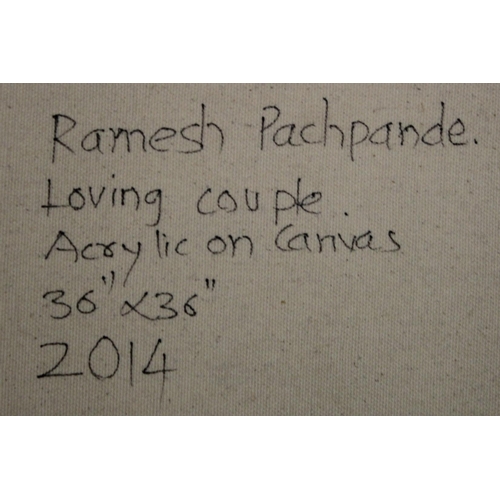 Ramesh Pachpande.
Loving couple.
Acrylic on Canvas
36" x 36"
2014